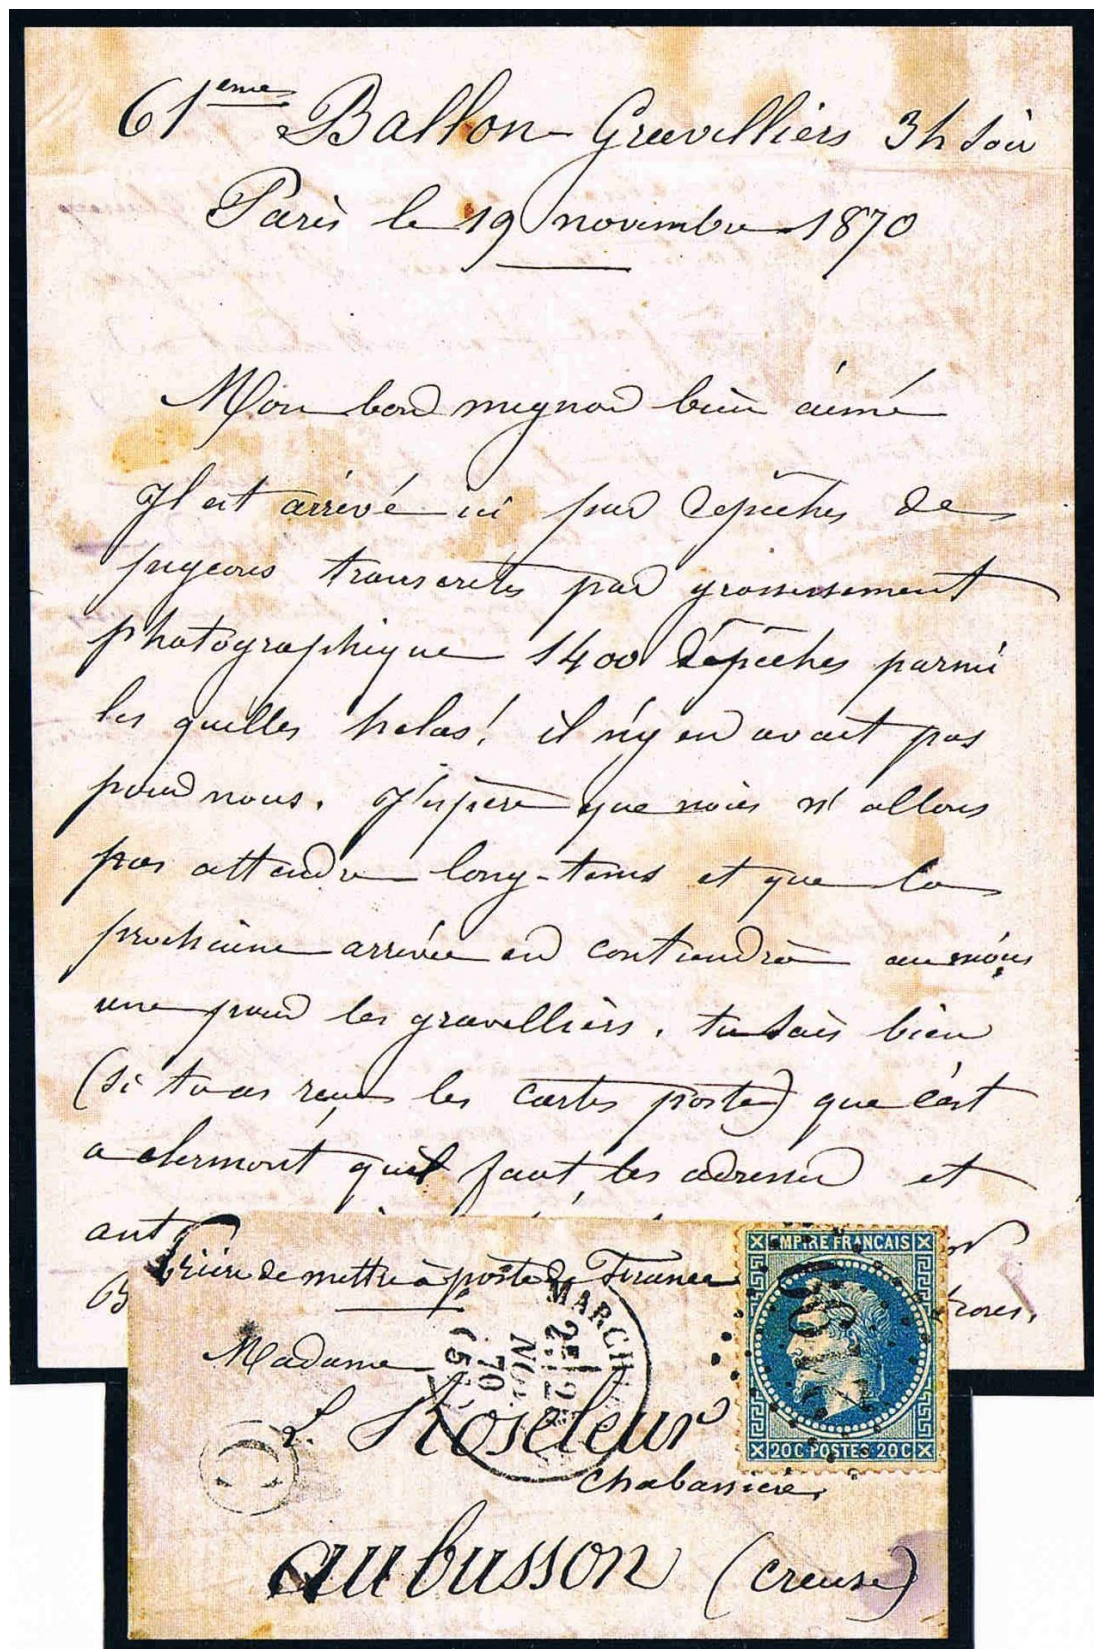 61eme Ballon Gravilliers 3h soir
Paris le 19 novembre 1870
Mon bon mignon bien aimé
Il est arrivé ici par depêches de
pigeons transcrites par grossissement
photographique 1400 dépêches parmi
les quelles helas! il n'y en avait pas
pour nous. J'espere que nous n'allons
pas attendre long-tems et que la
prochaine arrivée en contiendra au moins
une pour les gravilliers. tu sais bien
(si tu as reçu les cartes poste) que c'est
a clermont qu'il faut les adresser et
aut
Prière de mettre à poste de France
Madame
L. Roseleur
Chabassière
aubusson (creuse)
EMPIRE FRANCAIS
20C POSTES 20C
MARCH
2E
NOV.
70